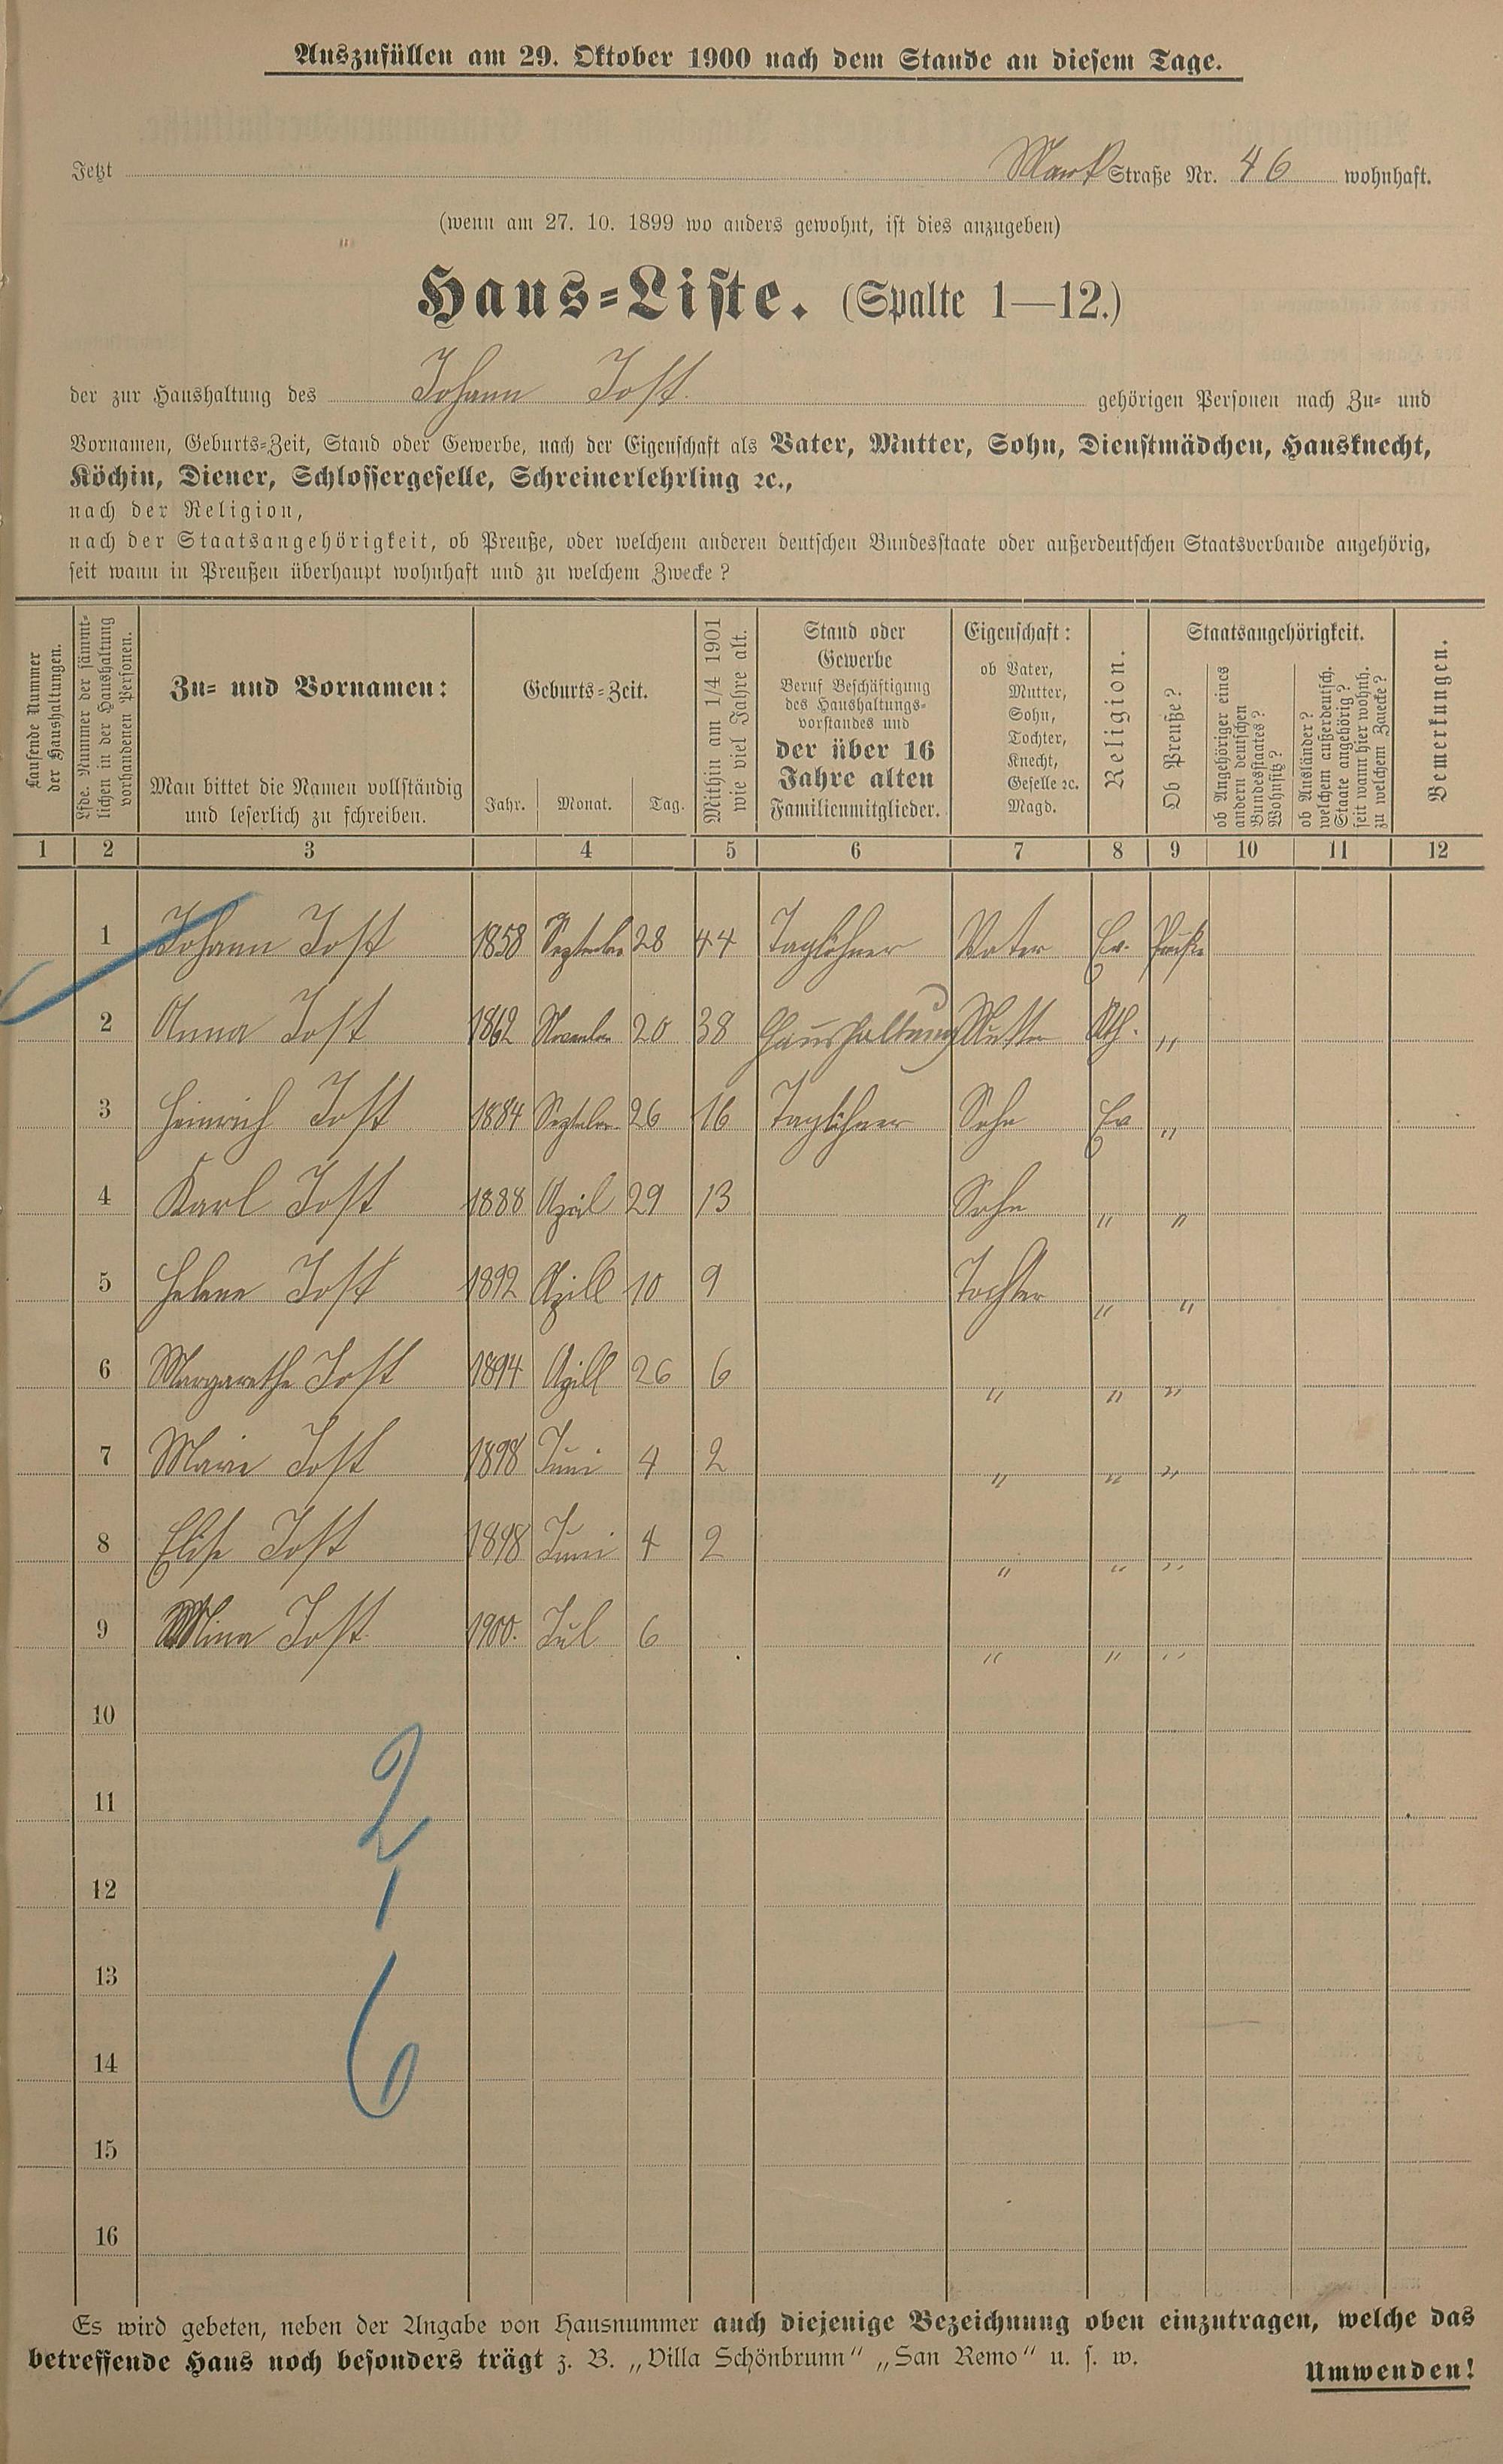 Auszufüllen am 29. Oktober 1900 nach dem Stande an diesem Tage.
Jetzt Mark Straße Nr. 46 wohnhaft.
(wenn am 27. 10. 1899 wo anders gewohnt, ist dies anzugeben)
Haus-Liste. (Spalte 1—12.)
der zur Haushaltung des Johann Jost. gehörigen Personen nach Zu- und
Vornamen, Geburts-Zeit, Stand oder Gewerbe, nach der Eigenschaft als Vater, Mutter, Sohn, Dienstmädchen, Hausknecht,
Köchin, Diener, Schlossergeselle, Schreinerlehrling ꝛc.,
nach der Religion,
nach der Staatsangehörigkeit, ob Preuße, oder welchem anderen deutschen Bundesstaate oder außerdeutschen Staatsverbande angehörig,
seit wann in Preußen überhaupt wohnhaft und zu welchem Zwecke?
Laufende Nummer
der Haushaltungen.
Lfde. Nummer der sämmt-
lichen in der Haushaltung
vorhandenen Personen.
Zu- und Vornamen:
Man bittet die Namen vollständig
und leserlich zu schreiben.
Geburts-Zeit.
Jahr. Monat. Tag.
Mithin am 1/4 1901
wie viel Jahre alt.
Stand oder
Gewerbe
Beruf Beschäftigung
des Haushaltungs-
vorstandes und
der über 16
Jahre alten
Familienmitglieder.
Eigenschaft:
ob Vater,
Mutter,
Sohn,
Tochter,
Knecht,
Geselle ꝛc.
Magd.
Religion.
Staatsangehörigkeit.
Ob Preuße?
ob Angehöriger eines
andern deutschen
Bundesstaates?
Wohnsitz?
ob Ausländer?
welchem außerdeutsch.
Staate angehörig?
seit wann hier wohnh.
zu welchem Zwecke?
Bemerkungen.
1 2 3 4 5 6 7 8 9 10 11 12
1 Johann Jost 1858 September 28 44 Taglöhner Vater Ev. Preuße
2 Anna Jost 1862 November 20 38 Haushaltung Mutter Kth. "
3 Heinrich Jost 1884 September 26 16 Taglöhner Sohn Ev "
4 Karl Jost 1888 April 29 13 Sohn " "
5 Helene Jost 1892 Aprill 10 9 Tochter " "
6 Margarethe Jost 1894 Aprill 26 6 " " "
7 Marie Jost 1898 Juni 4 2 " " "
8 Elise Jost 1898 Juni 4 2 " " "
9 Mina Jost 1900. Jul 6 " " "
10
11
2
12
1
13
14
6
15
16
Es wird gebeten, neben der Angabe von Hausnummer auch diejenige Bezeichnung oben einzutragen, welche das
betreffende Haus noch besonders trägt z. B. „Villa Schönbrunn“ „San Remo“ u. s. w.
Umwenden!